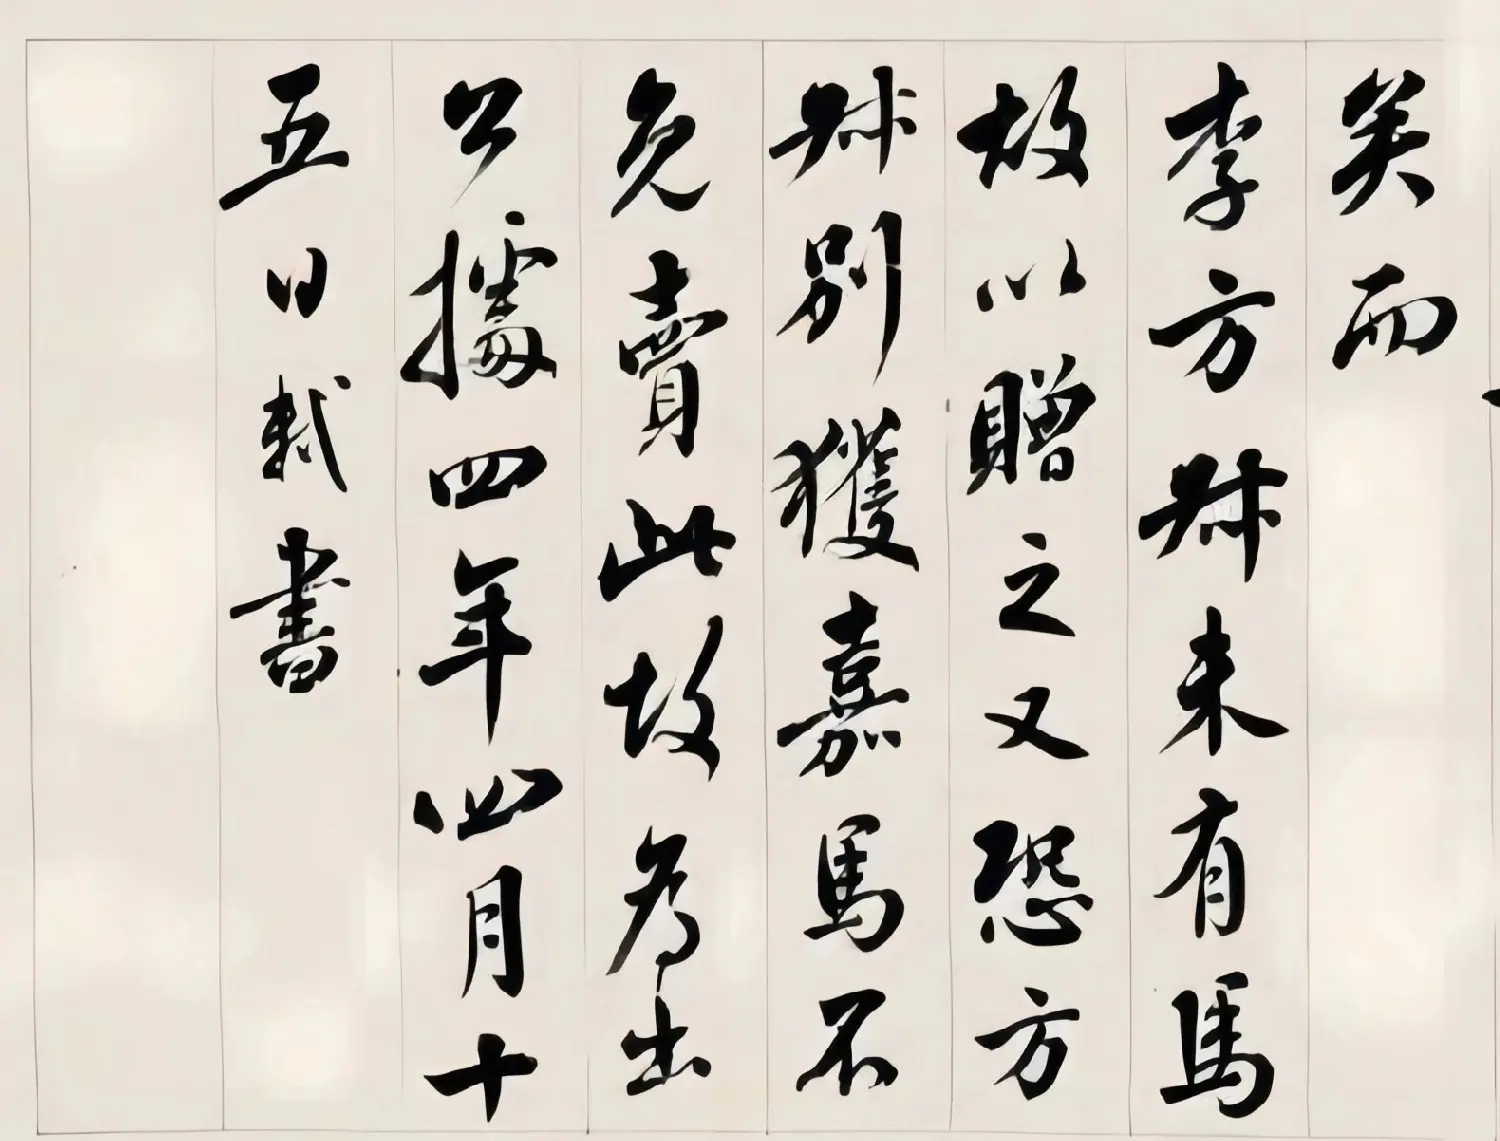 矣而
李方叔未有馬
故以贈之又恐方
叔別獲嘉馬不
免賣此故為出
公據四年四月十
五日軾書